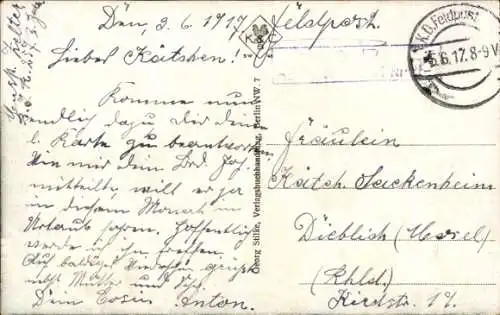 Den, 3.6.1917
Liebes Kätchen!
Komme nun
endlich dazu Dir deine
l. Karte zu beantworten
Wie mir dein Brd. Joh.
mitteilte, will er ja
in diesem Monat in
Urlaub fahren. Hoffentlich
werde ich ihn treffen.
Auf baldiges Wiedersehn grüßt
nebst Mutter und
Dein Cosin Anton.
Georg Stilke, Verlagsbuchhandlung, Berlin NW. 7
Feldpost
K.D.Feldpost
5.6.17.8-9V
Fräulein
Kätch. Sackenheim
Dieblich (Mosel)
(Rhld.)
Kirchstr. 17.